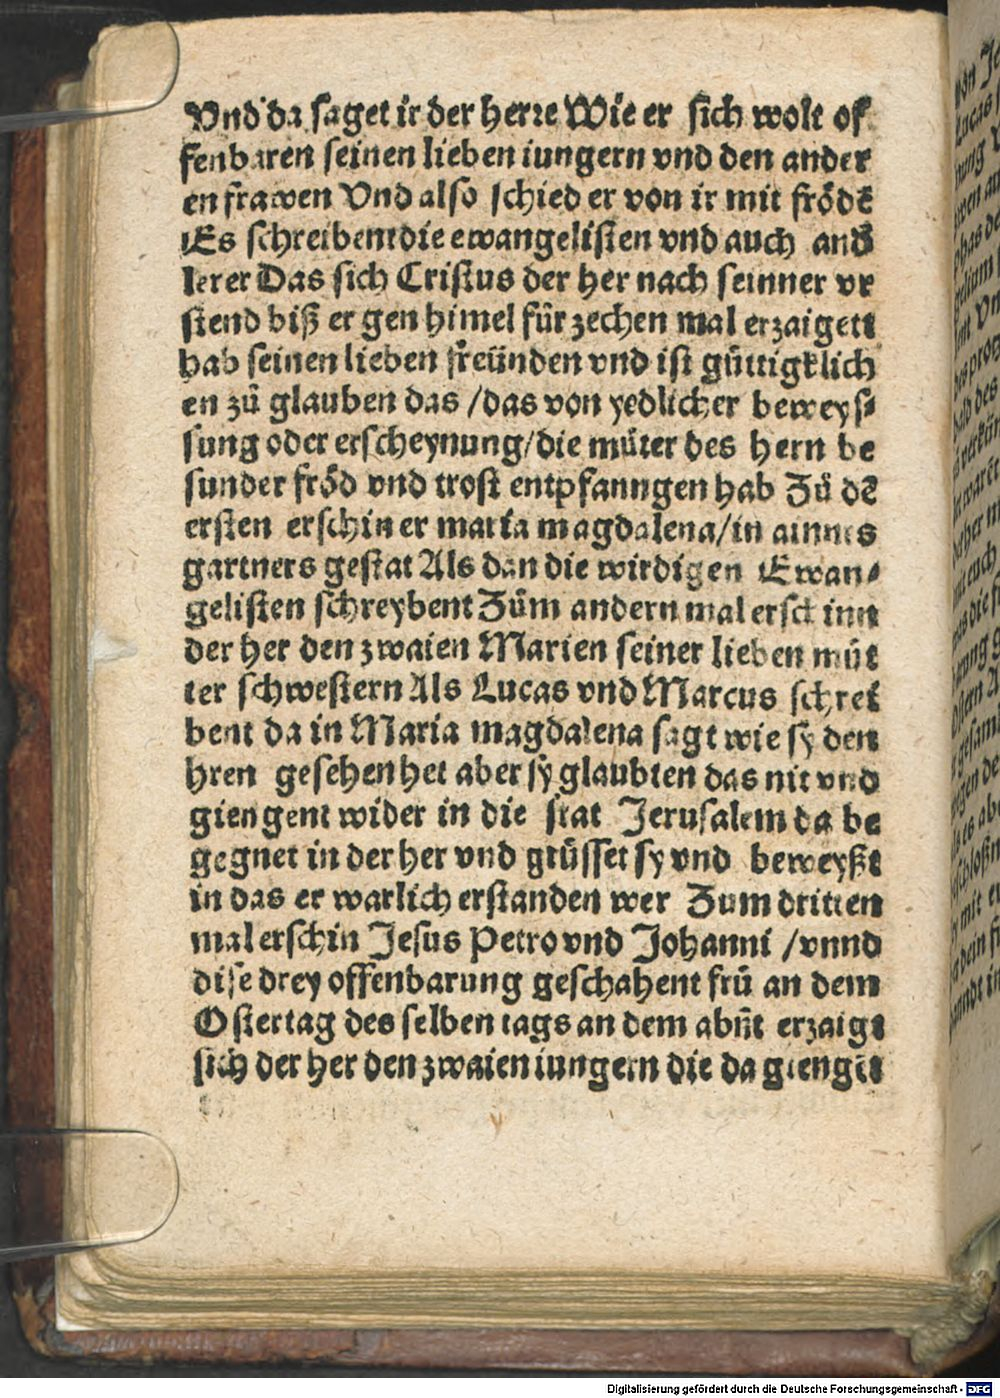 Vnd da saget ir der herre Wie er sich wolt of
fenbaren seinen lieben iungern vnd den ander
en frawen Vnd also schied er von ir mit frödē
Es schreibent die ewangelisten vnd auch and
lerer Das sich Cristus der her nach seinner vr
stend biß er gen himel für zechen mal erzaigett
hab seinen lieben freünden vnd ist güttigklich
en zů glauben das /das von yedlicher beweys⸗
sung oder erscheynung/die můter des hern be
sunder fröd vnd trost entpfanngen hab Zů dē
ersten erschin er maria magdalena/in ainnes
gartners gestat Als dan die wirdigen Ewan⸗
gelisten schreybent Zům andern mal erschinn
der her den zwaien Marien seiner lieben můt
ter schwestern Als Lucas vnd Marcus schrei
bent da in Maria magdalena sagt wie sy den
hren gesehen het aber sy glaubten das nit vnd
giengent wider in die stat Jerusalem da be
gegnet in der her vnd grüsset sy vnd beweyßt
in das er warlich erstanden wer Zum dritten
mal erschin Jesus Petro vnd Johanni /vnnd
dise drey offenbarung geschahent frů an dem
Ostertag des selben tags an dem abñt erzaigt
sich der her den zwaien iungern die da giengēt
Digitalisierung gefördert durch die Deutsche Forschungsgemeinschaft - DFG